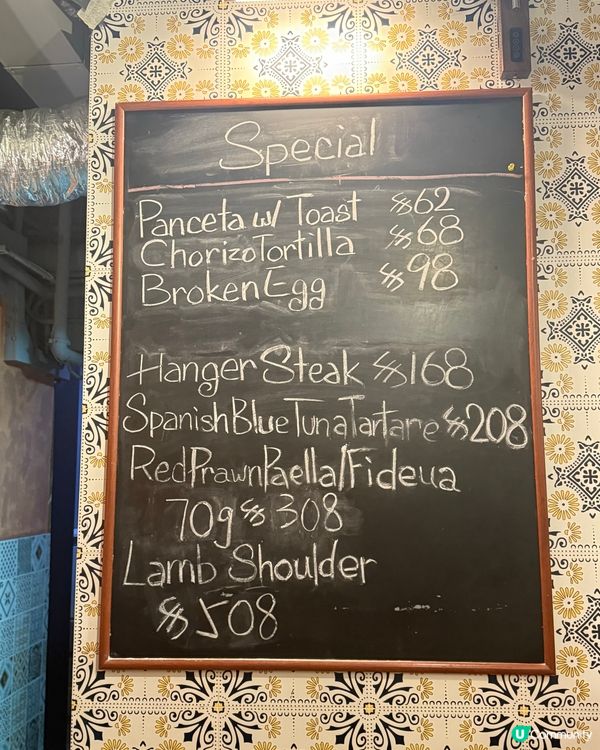 Special
Panceta w/ Toast $62
Chorizo Tortilla $68
Broken Egg $98
Hanger Steak $168
Spanish Blue Tuna Tartare $208
Red Prawn Paella/Fideua
70g $308
Lamb Shoulder
$508
U Community